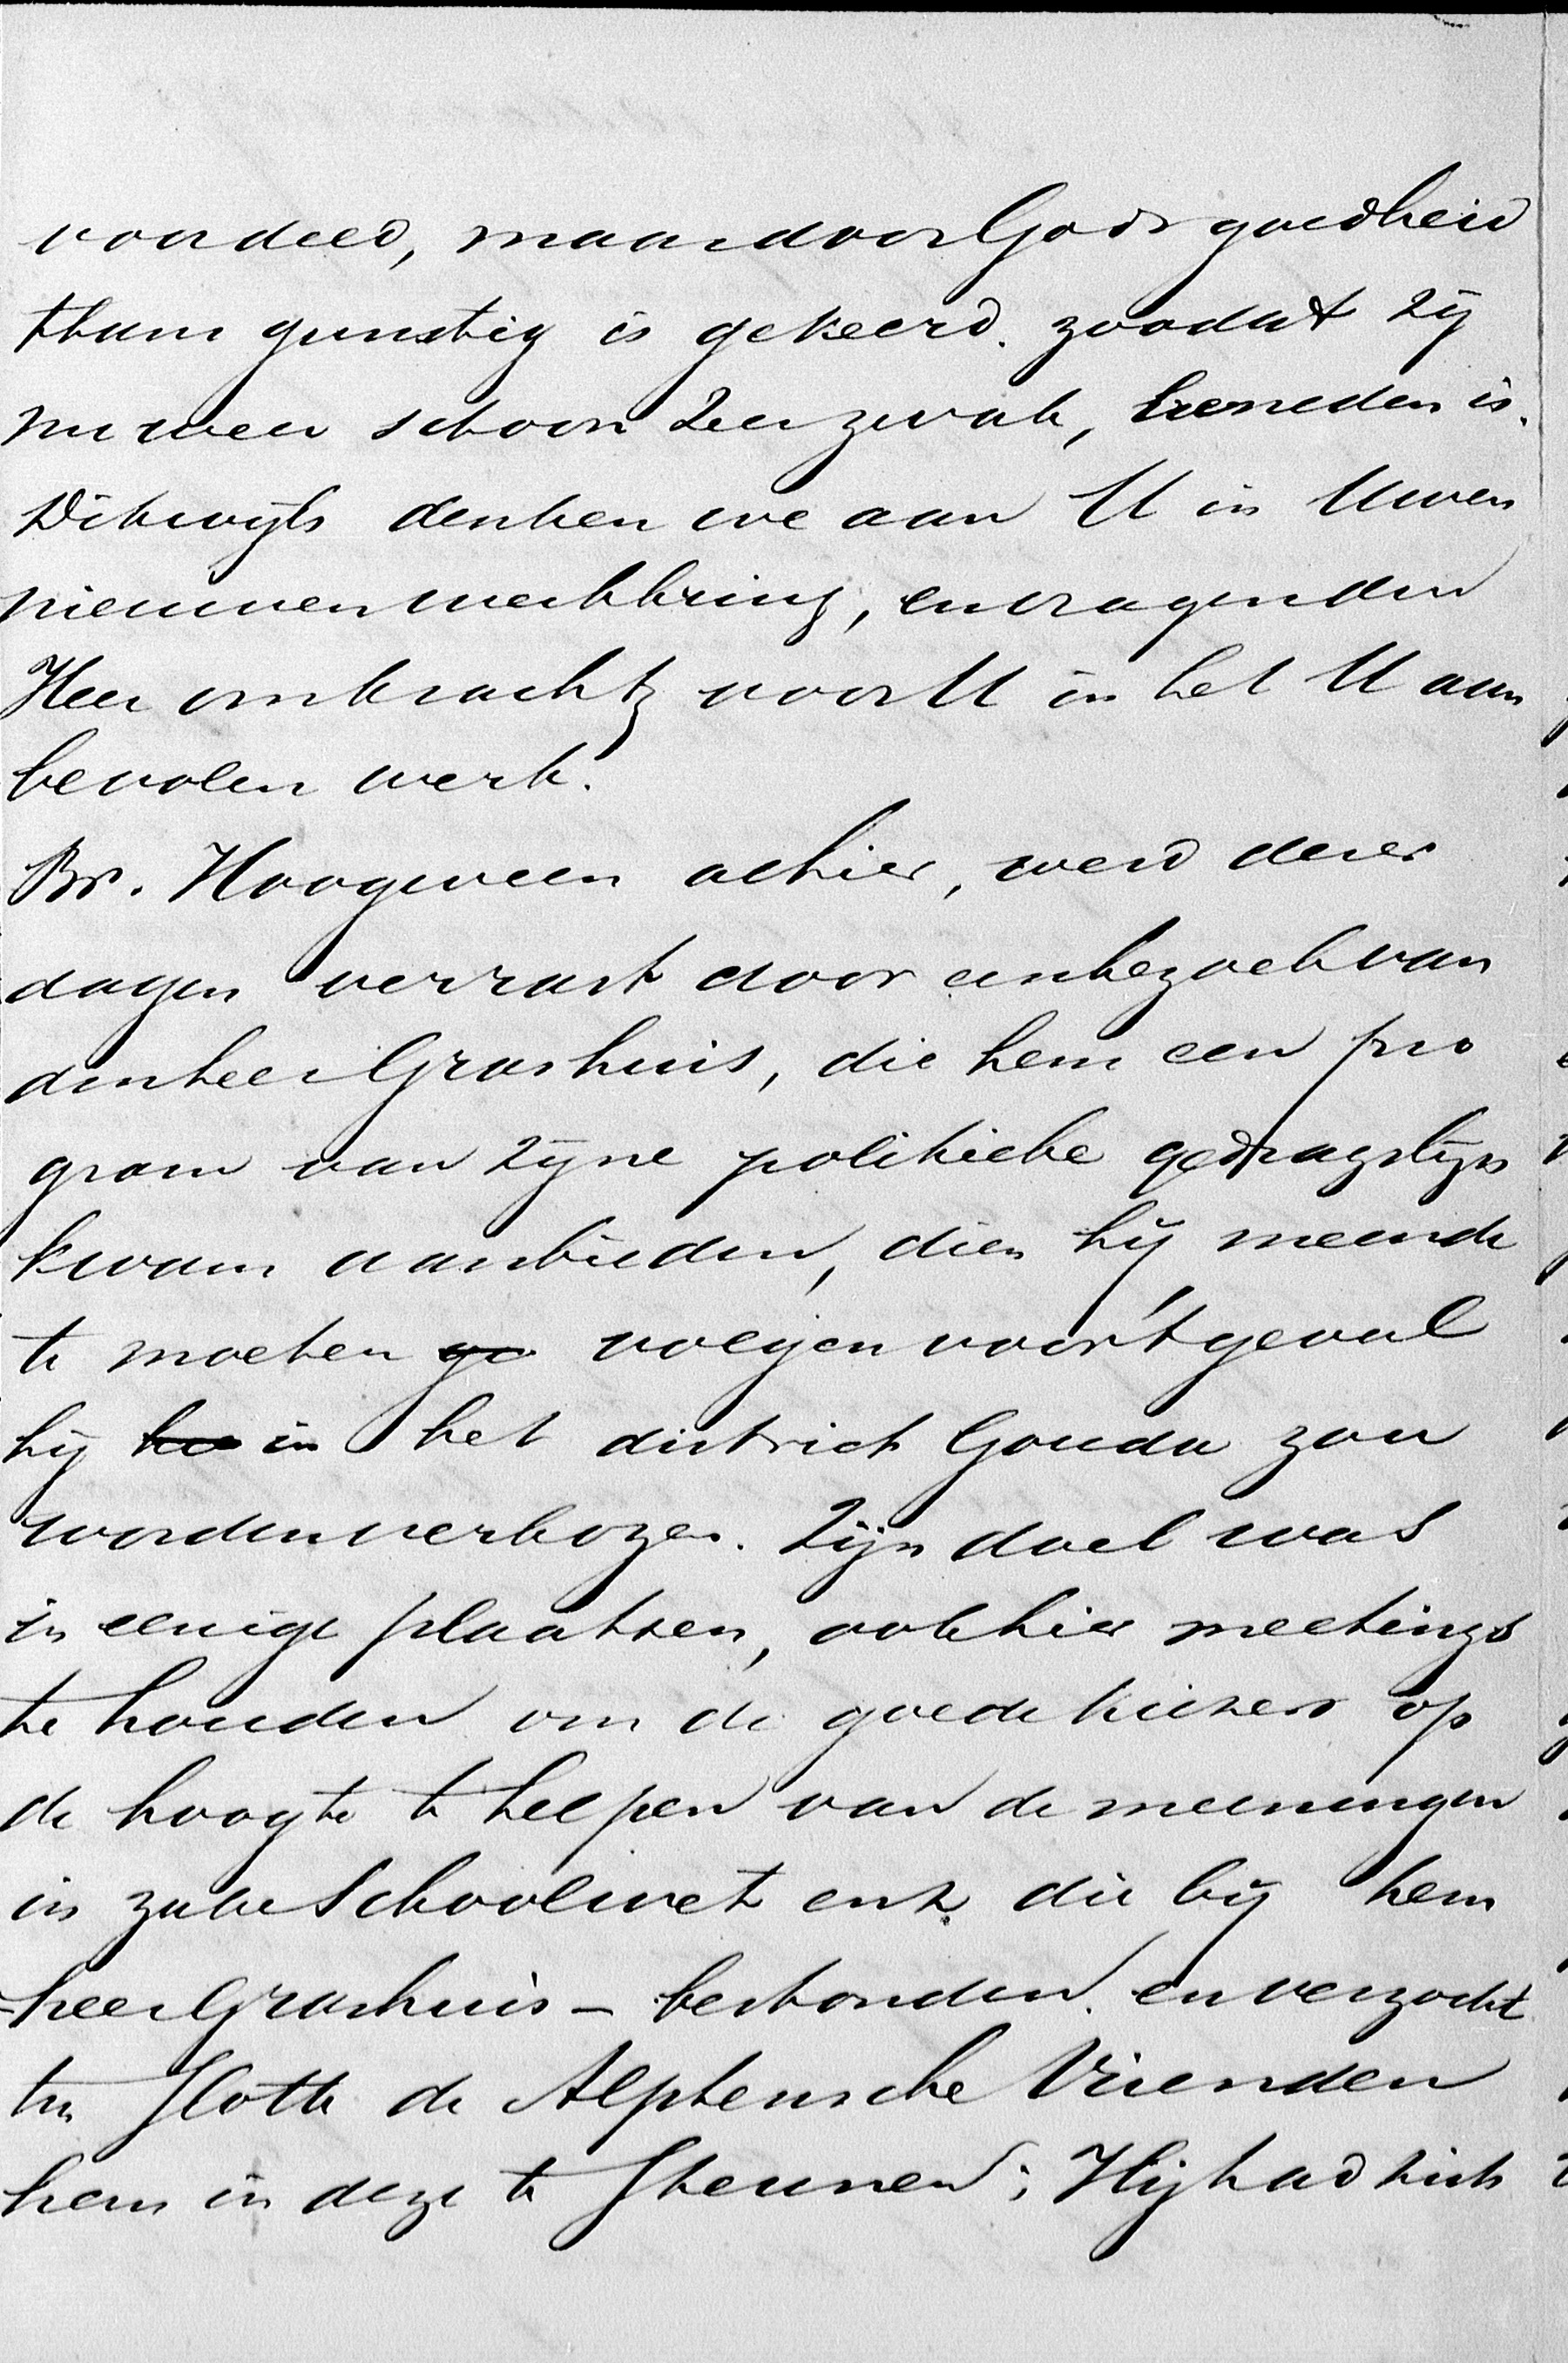 voordeed, maar door Gods goedheid
thans gunstig is gekeerd. zoodat zij
nu weer schoon zeer zwak, beneden is.
Dikwijls denken we aan U in Uwen
nieuwen werkkring, en vragen den
Heer om kracht voor U in het U aan
bevolen werk.
Br. Hoogeveen alhier, werd dezer
dagen verrast door een bezoek van
den heer Grashuis, die hem een pro
gram van zijne politieke gedragslijn
kwam aanbieden, dien hij meende
te moeten ge volgen voor 't geval
hij he in het district Gouda zou
worden verkozen. Zijn doel was
in eenige plaatsen, ook hier meetings
te houden om de goede kiezers op
de hoogte te helpen van de meeningen
in zake Schoolwet enz. die bij hem
- heer Grashuis - bestonden. en verzocht
ten slotte de Alphensche Vrienden
hem in deze te steunen; Hij had zich